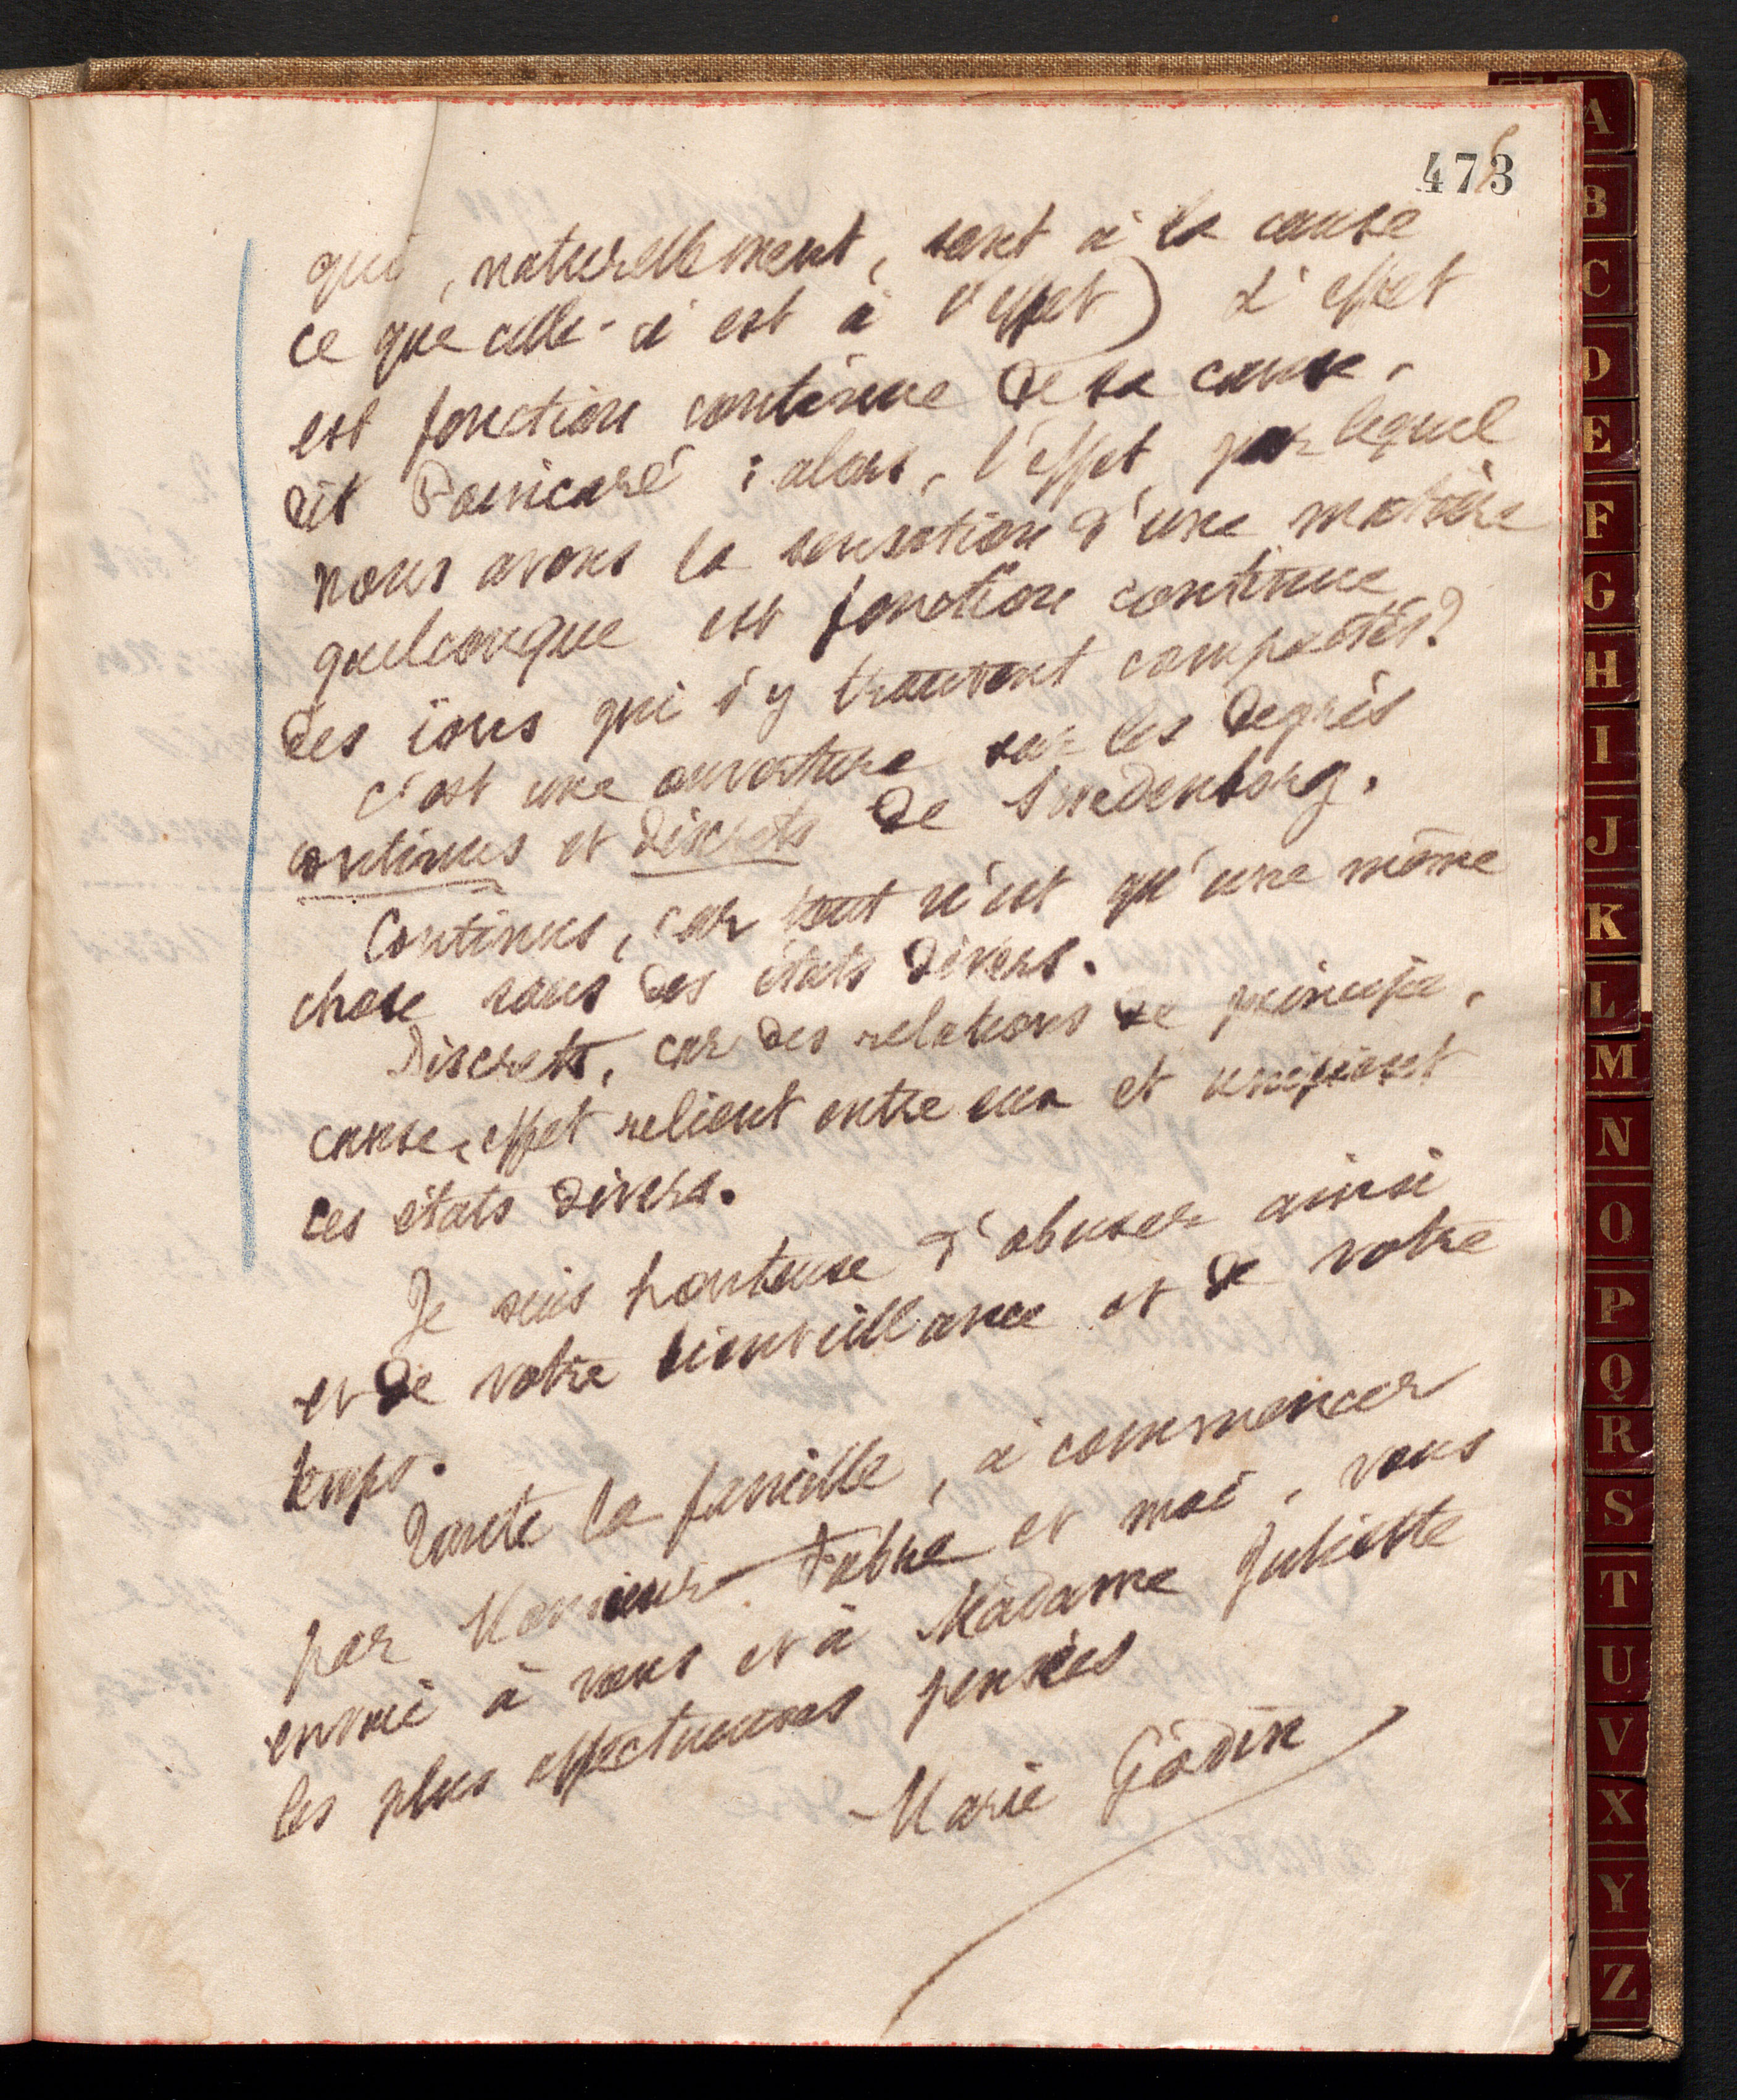 473
qui, naturellement, sont à la cause
ce que celle-ci est à l'effet) L'effet
est fonction continue de sa cause,
dit Poincaré : alors, l'effet par lequel
nous avons la sensation d'une matière
quelconque est fonction continue
des ïons qui s'y trouvent compactés?
C'est une ouverture sur les degrés
continus et discrets de Swedenborg.
Continus, car tout n'est qu'une même
chose sous des états divers.
Discrets, car des relations de principe,
cause, effet relient entre eux et unifient
ces états divers.
Je suis honteuse d'abuser ainsi
et de votre bienveillance et de votre
temps.
Toute la famille, à commencer
par Monsieur Fabre et moi, vous
envoie à vous et à Madame Juliette
les plus affectueuses pensées
Marie Godin
A
B
C
D
E
F
G
H
I
J
K
L
M
N
O
P
Q
R
S
T
U
V
X
Y
Z